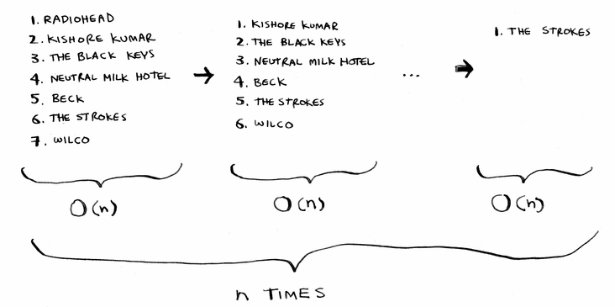 1. RADIOHEAD
2. KISHORE KUMAR
3. THE BLACK KEYS
4. NEUTRAL MILK HOTEL
5. BECK
6. THE STROKES
7. WILCO
O(n)
1. KISHORE KUMAR
2. THE BLACK KEYS
3. NEUTRAL MILK HOTEL
4. BECK
5. THE STROKES
6. WILCO
O(n)
...
1. THE STROKES
O(n)
n TIMES